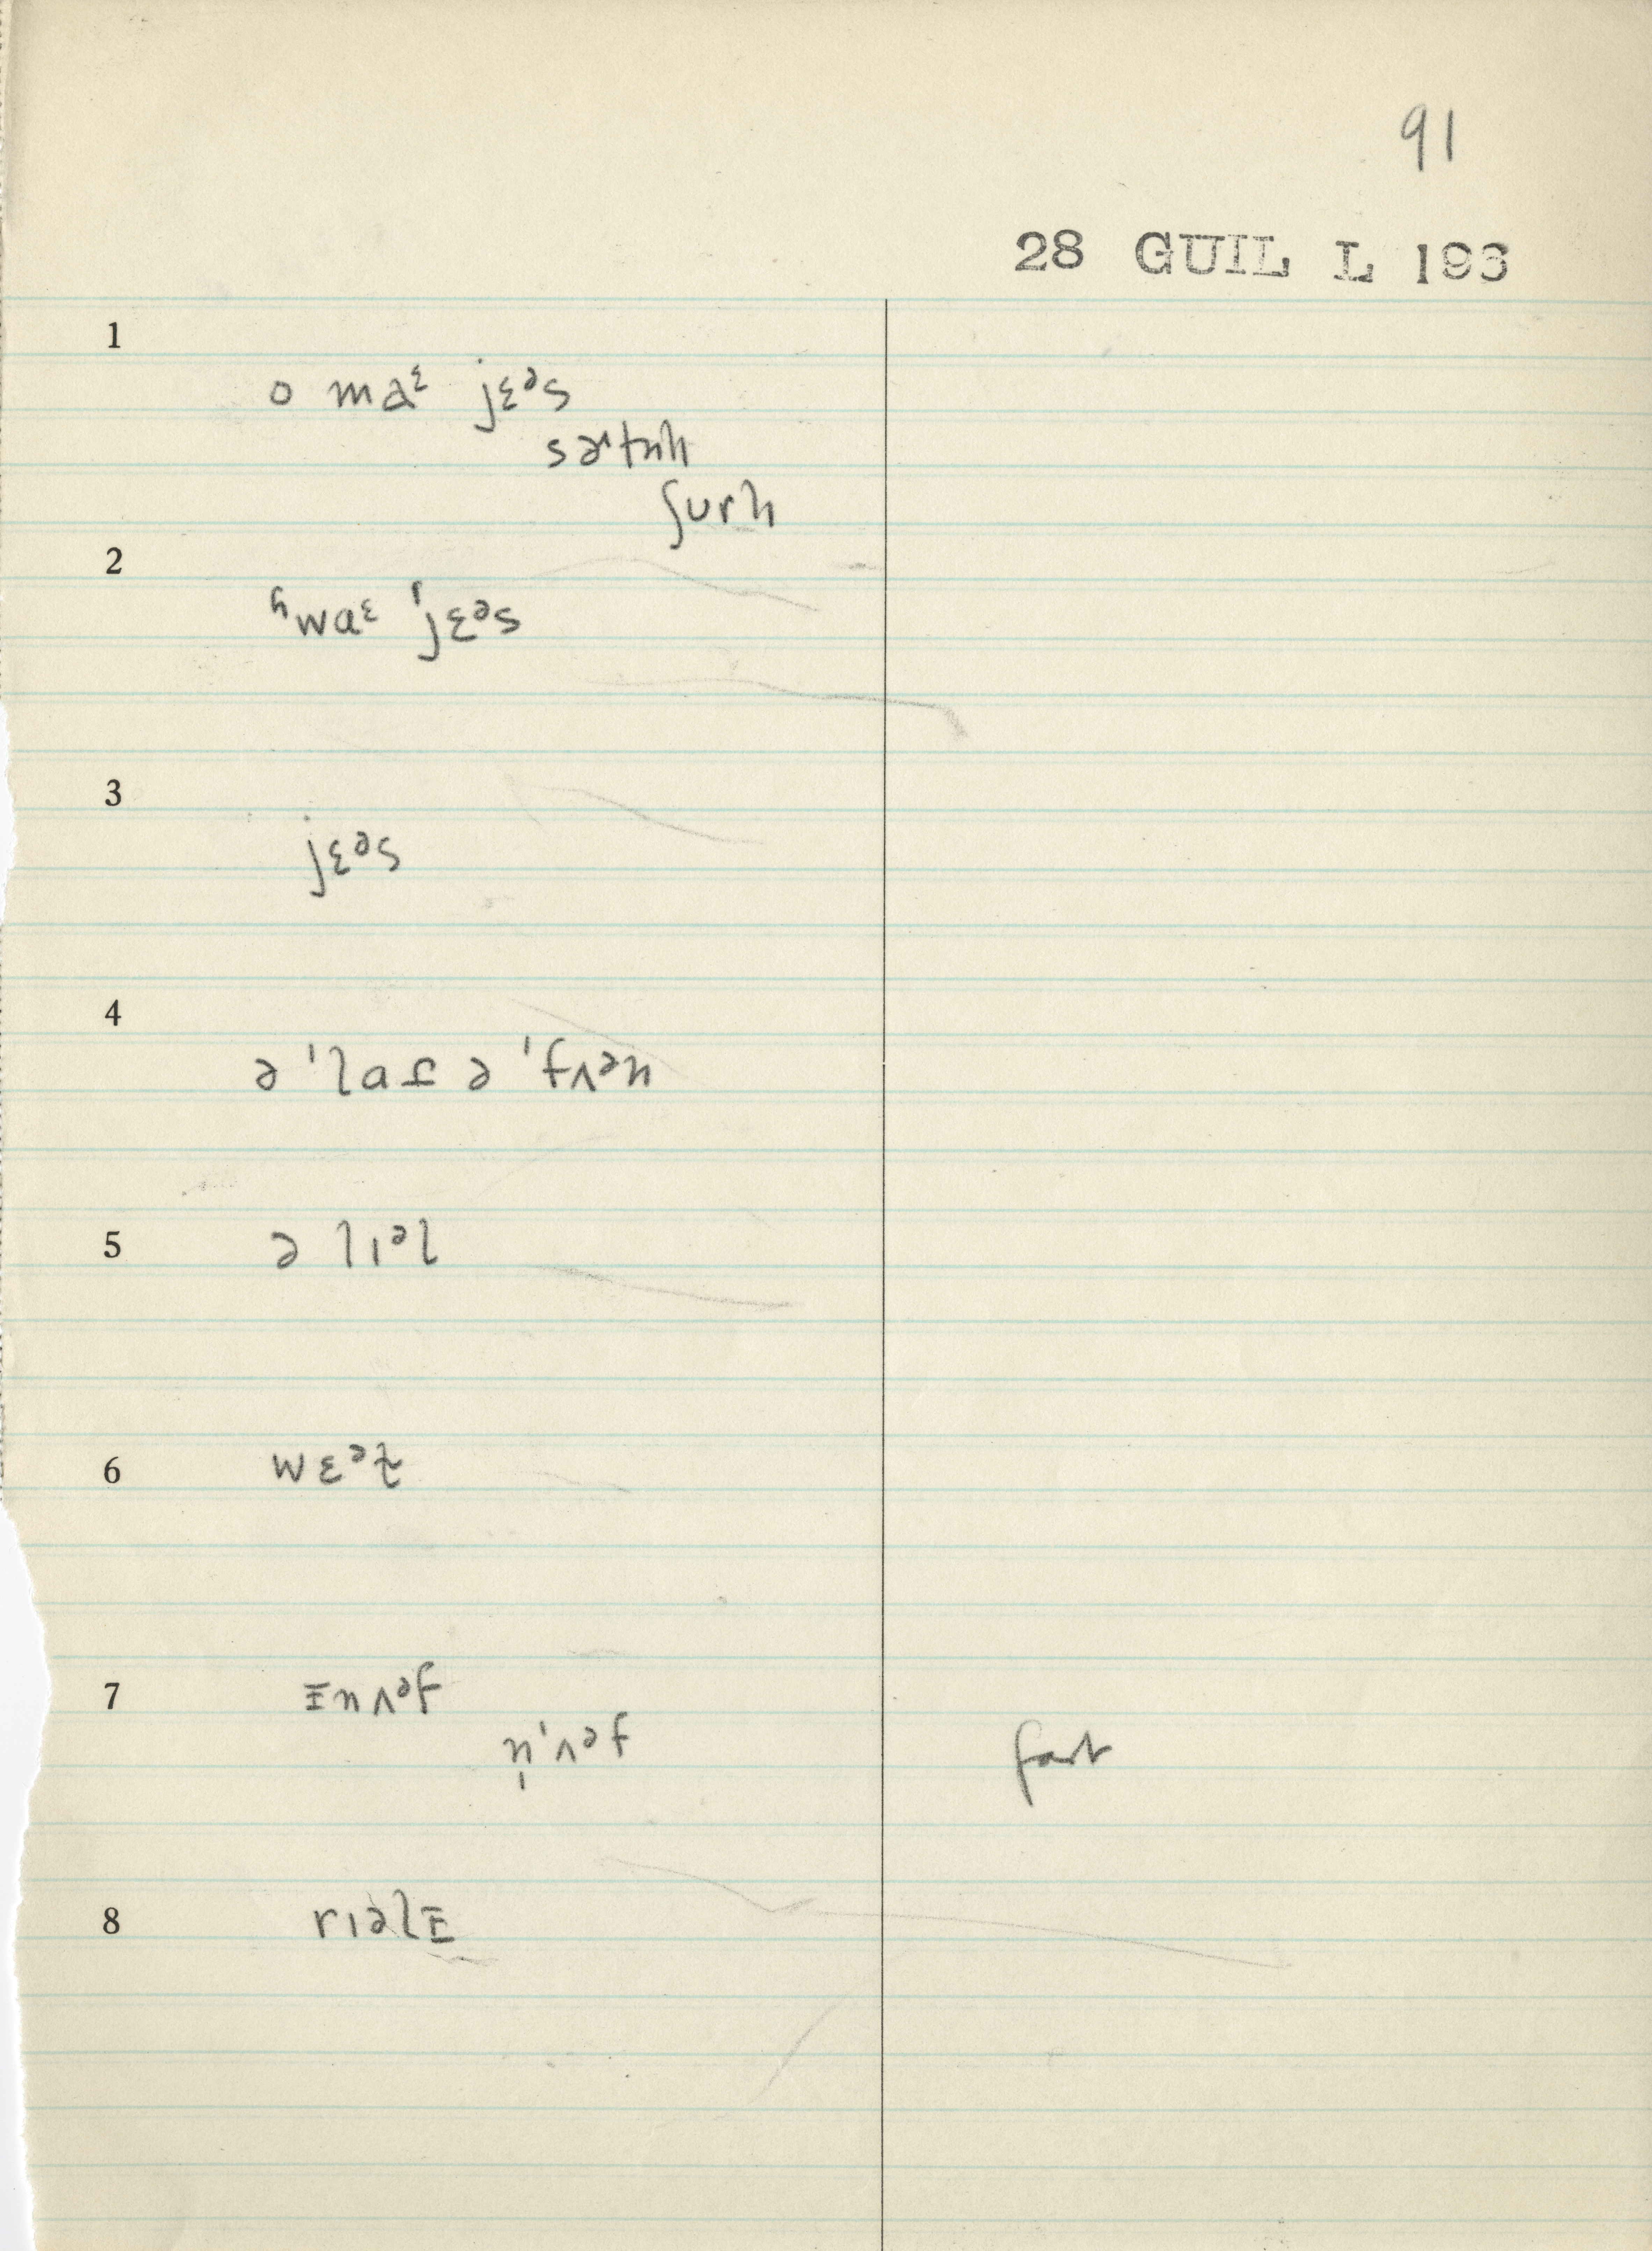 91
28 GUIL L 193
1
o maᵋ jɛᵊs
sɚtnlɪ
ʃurlɪ
2
ʰwaᵋ ˈjɛᵊs
3
jɛᵊs
4
ə ˈlaf ə ˈfʌᵊn
5
ə lɪᵊl
6
wɛᵊt
7
ɪnʌᵊf
n̩ˈʌəf fast
8
rɪəlɪ